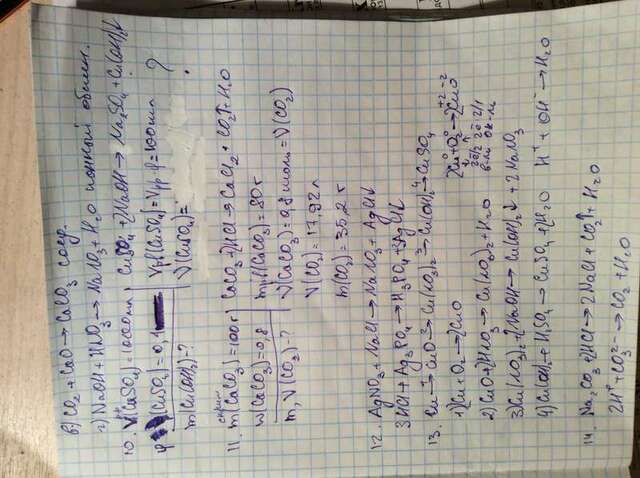 в) CO₂ + CaO → CaCO₃ соед.
г) NaOH + HNO₃ → NaNO₃ + H₂O ионный обмен.
10. V(CuSO₄) = 1000 мл | CuSO₄ + 2NaOH → Na₂SO₄ + Cu(OH)₂↓
φ (CuSO₄) = 0,1
m(Cu(OH)₂) - ?
ν(CuSO₄) =
?
11. m(CaCO₃) = 100 г | CaCO₃ + 2HCl → CaCl₂ + CO₂↑ + H₂O
w(CaCO₃) = 0,8
m(CaCO₃) = 80 г
m, V(CO₂) - ?
ν(CaCO₃) = 0,8 моль = ν(CO₂)
V(CO₂) = 17,92 л
m(CO₂) = 35,2 г
12. AgNO₃ + NaCl → NaNO₃ + AgCl↓
3HCl + Ag₃PO₄ → H₃PO₄ + 3AgCl↓
13. Cu →¹ CuO →² Cu(NO₃)₂ →³ Cu(OH)₂ →⁴ CuSO₄
1) 2Cu + O₂ → 2CuO
2) CuO + 2HNO₃ → Cu(NO₃)₂ + H₂O
3) Cu(NO₃)₂ + 2NaOH → Cu(OH)₂↓ + 2NaNO₃
4) Cu(OH)₂ + H₂SO₄ → CuSO₄ + 2H₂O H⁺ + OH⁻ → H₂O
14. Na₂CO₃ + 2HCl → 2NaCl + CO₂↑ + H₂O
2H⁺ + CO₃²⁻ → CO₂ + H₂O